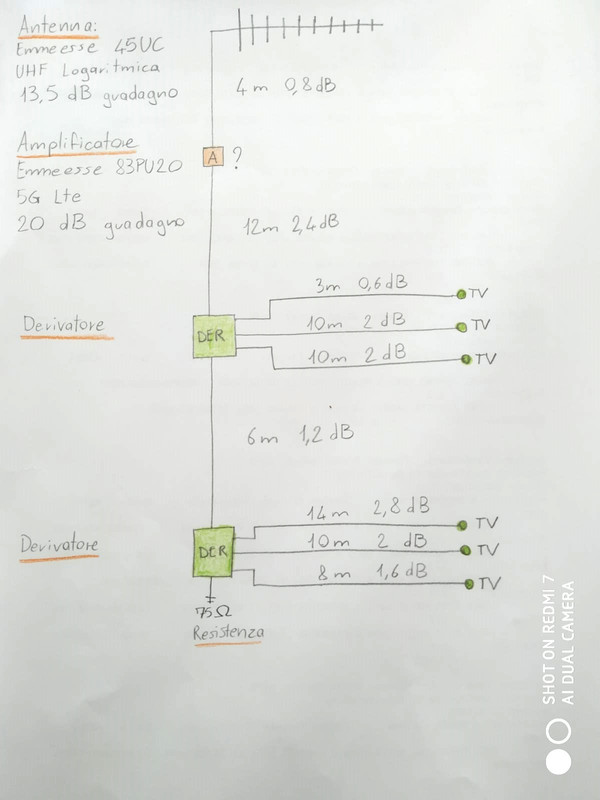 Antenna:
Emmeesse 45UC
UHF Logaritmica
13,5 dB guadagno
4 m 0,8 dB
Amplificatore
Emmeesse 83PU20
5G Lte
20 dB guadagno
A ?
12m 2,4 dB
Derivatore
DER
3m 0,6 dB TV
10m 2 dB TV
10m 2 dB TV
6m 1,2 dB
Derivatore
DER
14m 2,8 dB TV
10m 2 dB TV
8m 1,6 dB TV
75Ω
Resistenza
SHOT ON REDMI 7
AI DUAL CAMERA